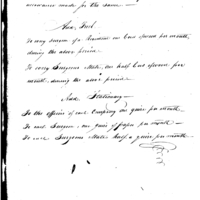 allowance made for the same —
And, Fuel.
To every Surgeon of a Regiment one Cord
during the above period.
To every Surgeons Mate, one half Cord of wood per
month during the above period.
And, Stationary —
To the officer of each Company one quire per month
To each Surgeon, one quire of paper per month —
To each Surgeons Mate half a quire per month.